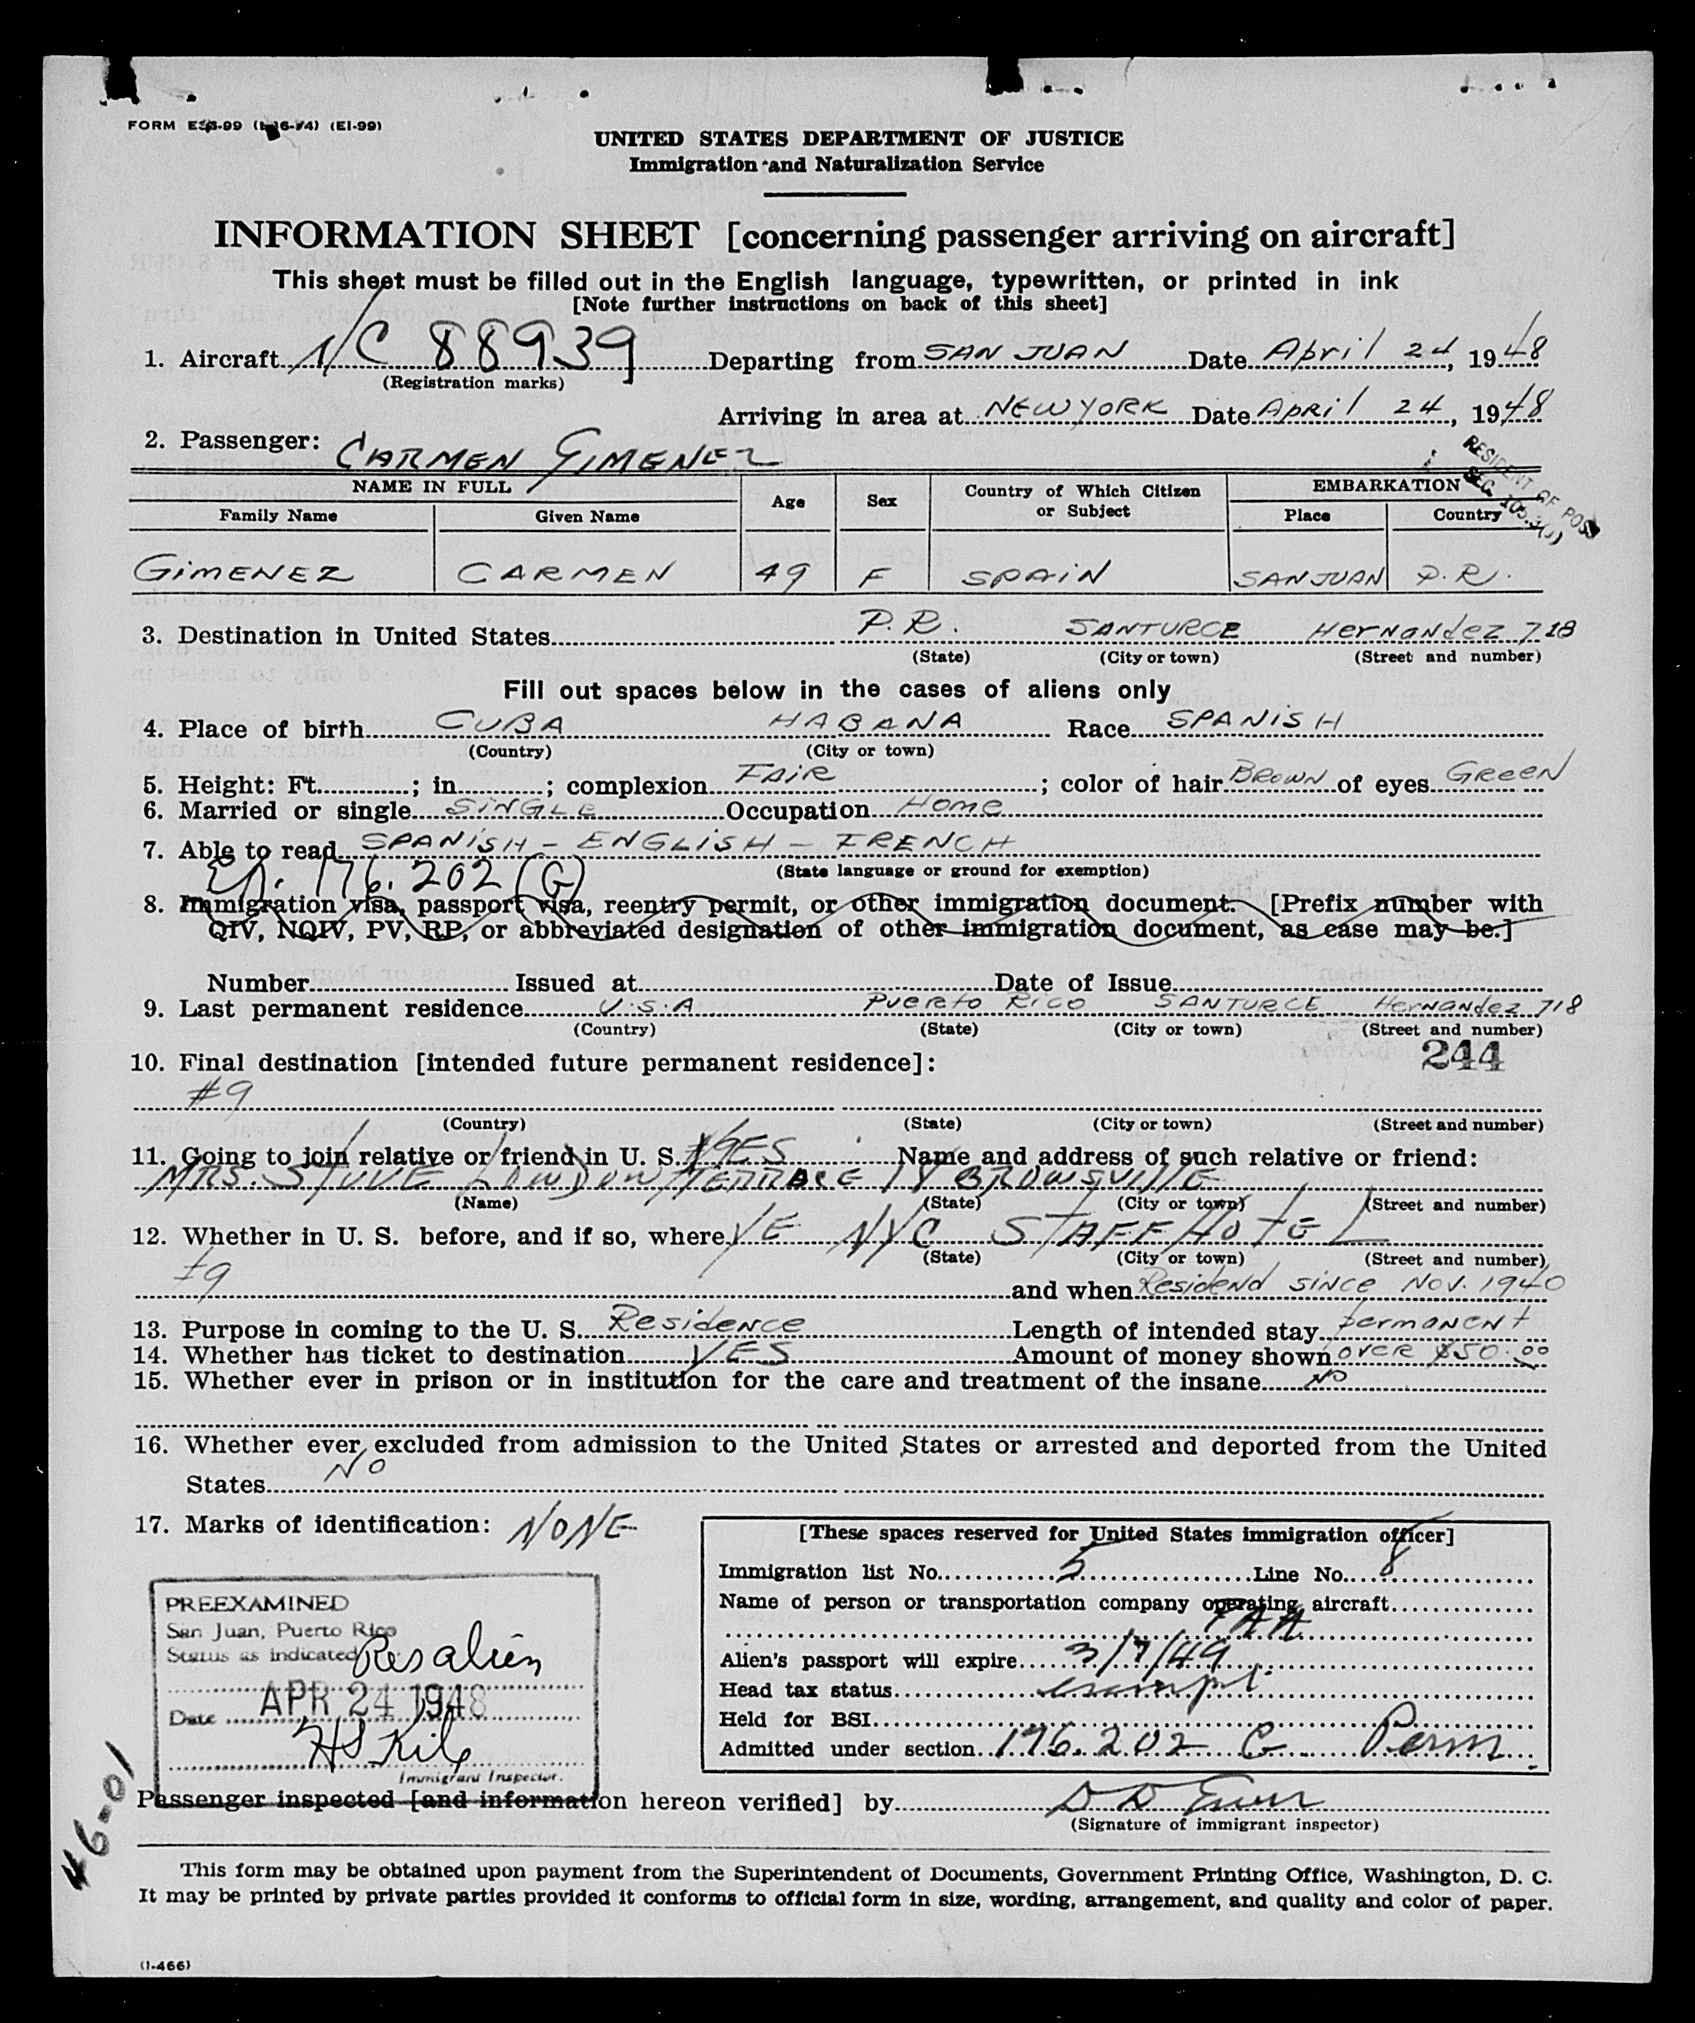 UNITED STATES DEPARTMENT OF JUSTICE
Immigration and Naturalization Service
INFORMATION SHEET [concerning passenger arriving on aircraft]
This sheet must be filled out in the English language, typewritten, or printed in ink
[Note further instructions on back of this sheet]
1. Aircraft NC 88939 Departing from SAN JUAN Date April 24, 1948
(Registration marks)
Arriving in area at NEW YORK Date April 24, 1948
2. Passenger: CARMEN GIMENEZ
RESIDENT OF POSS
NAME IN FULL Age Sex Country of Which Citizen or Subject EMBARKATION
SEC. 105.3(J)
Family Name Given Name Place Country
GIMENEZ CARMEN 49 F SPAIN SAN JUAN P.R.
3. Destination in United States P.R. SANTURCE Hernandez 718
(State) (City or town) (Street and number)
Fill out spaces below in the cases of aliens only
4. Place of birth CUBA HABANA Race SPANISH
(Country) (City or town)
5. Height: Ft. ; in. ; complexion FAIR ; color of hair BROWN of eyes GREEN
6. Married or single SINGLE Occupation Home
7. Able to read SPANISH - ENGLISH - FRENCH
(State language or ground for exemption)
176.202 (G)
8. Immigration visa, passport visa, reentry permit, or other immigration document. [Prefix number with
QIV, NQIV, PV, RP, or abbreviated designation of other immigration document, as case may be.]
Number Issued at Date of Issue
9. Last permanent residence U.S.A Puerto Rico SANTURCE Hernandez 718
(Country) (State) (City or town) (Street and number)
10. Final destination [intended future permanent residence]: 244
#9
(Country) (State) (City or town) (Street and number)
11. Going to join relative or friend in U. S. YES Name and address of such relative or friend:
MRS. STUVE LONDON TERRACE 14 BROWSVILLE
(Name) (State) (City or town) (Street and number)
12. Whether in U. S. before, and if so, where YE NYC STAFF HOTEL
(State) (City or town) (Street and number)
#9
and when Residend since Nov. 1940
13. Purpose in coming to the U. S. Residence Length of intended stay permanent
14. Whether has ticket to destination YES Amount of money shown over $50.00
15. Whether ever in prison or in institution for the care and treatment of the insane NO
16. Whether ever excluded from admission to the United States or arrested and deported from the United
States NO
17. Marks of identification: NONE
PREEXAMINED
San Juan, Puerto Rico
Status as indicated Resalien
Date APR 24 1948
Immigrant Inspector.
[These spaces reserved for United States immigration officer]
Immigration list No. 5 Line No. 8
Name of person or transportation company operating aircraft
PAA
Alien's passport will expire 3/7/49
Head tax status exempt
Held for BSI
Admitted under section 176.202 G Perm
46-01
Passenger inspected [and information hereon verified] by
(Signature of immigrant inspector)
This form may be obtained upon payment from the Superintendent of Documents, Government Printing Office, Washington, D. C.
It may be printed by private parties provided it conforms to official form in size, wording, arrangement, and quality and color of paper.
(I-466)